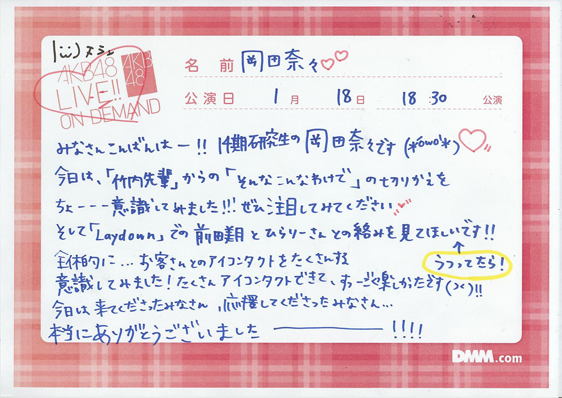 AKB48
LIVE!!
ON DEMAND
AKB
48
名前 岡田奈々
公演日 1月 18日 18:30 公演
みなさんこんばんはー!! 14期研究生の岡田奈々です(*ÓωÒ*)
今日は、「竹内先輩」からの「そんなこんなわけで」の切りかえを
ちょーーー意識してみました!!! ぜひ注目してみてください
そして「Laydown」での前田美月とひらりーさんとの絡みを見てほしいです!!
うつってたら!
全体的に…お客さんとのアイコンタクトをたくさん
意識してみました!たくさんアイコンタクトできて、すっごく楽しかったです(>
<)!!
今日は来てくださったみなさん、応援してくださったみなさん…
本当にありがとうございました――――!!!!
DMM.com